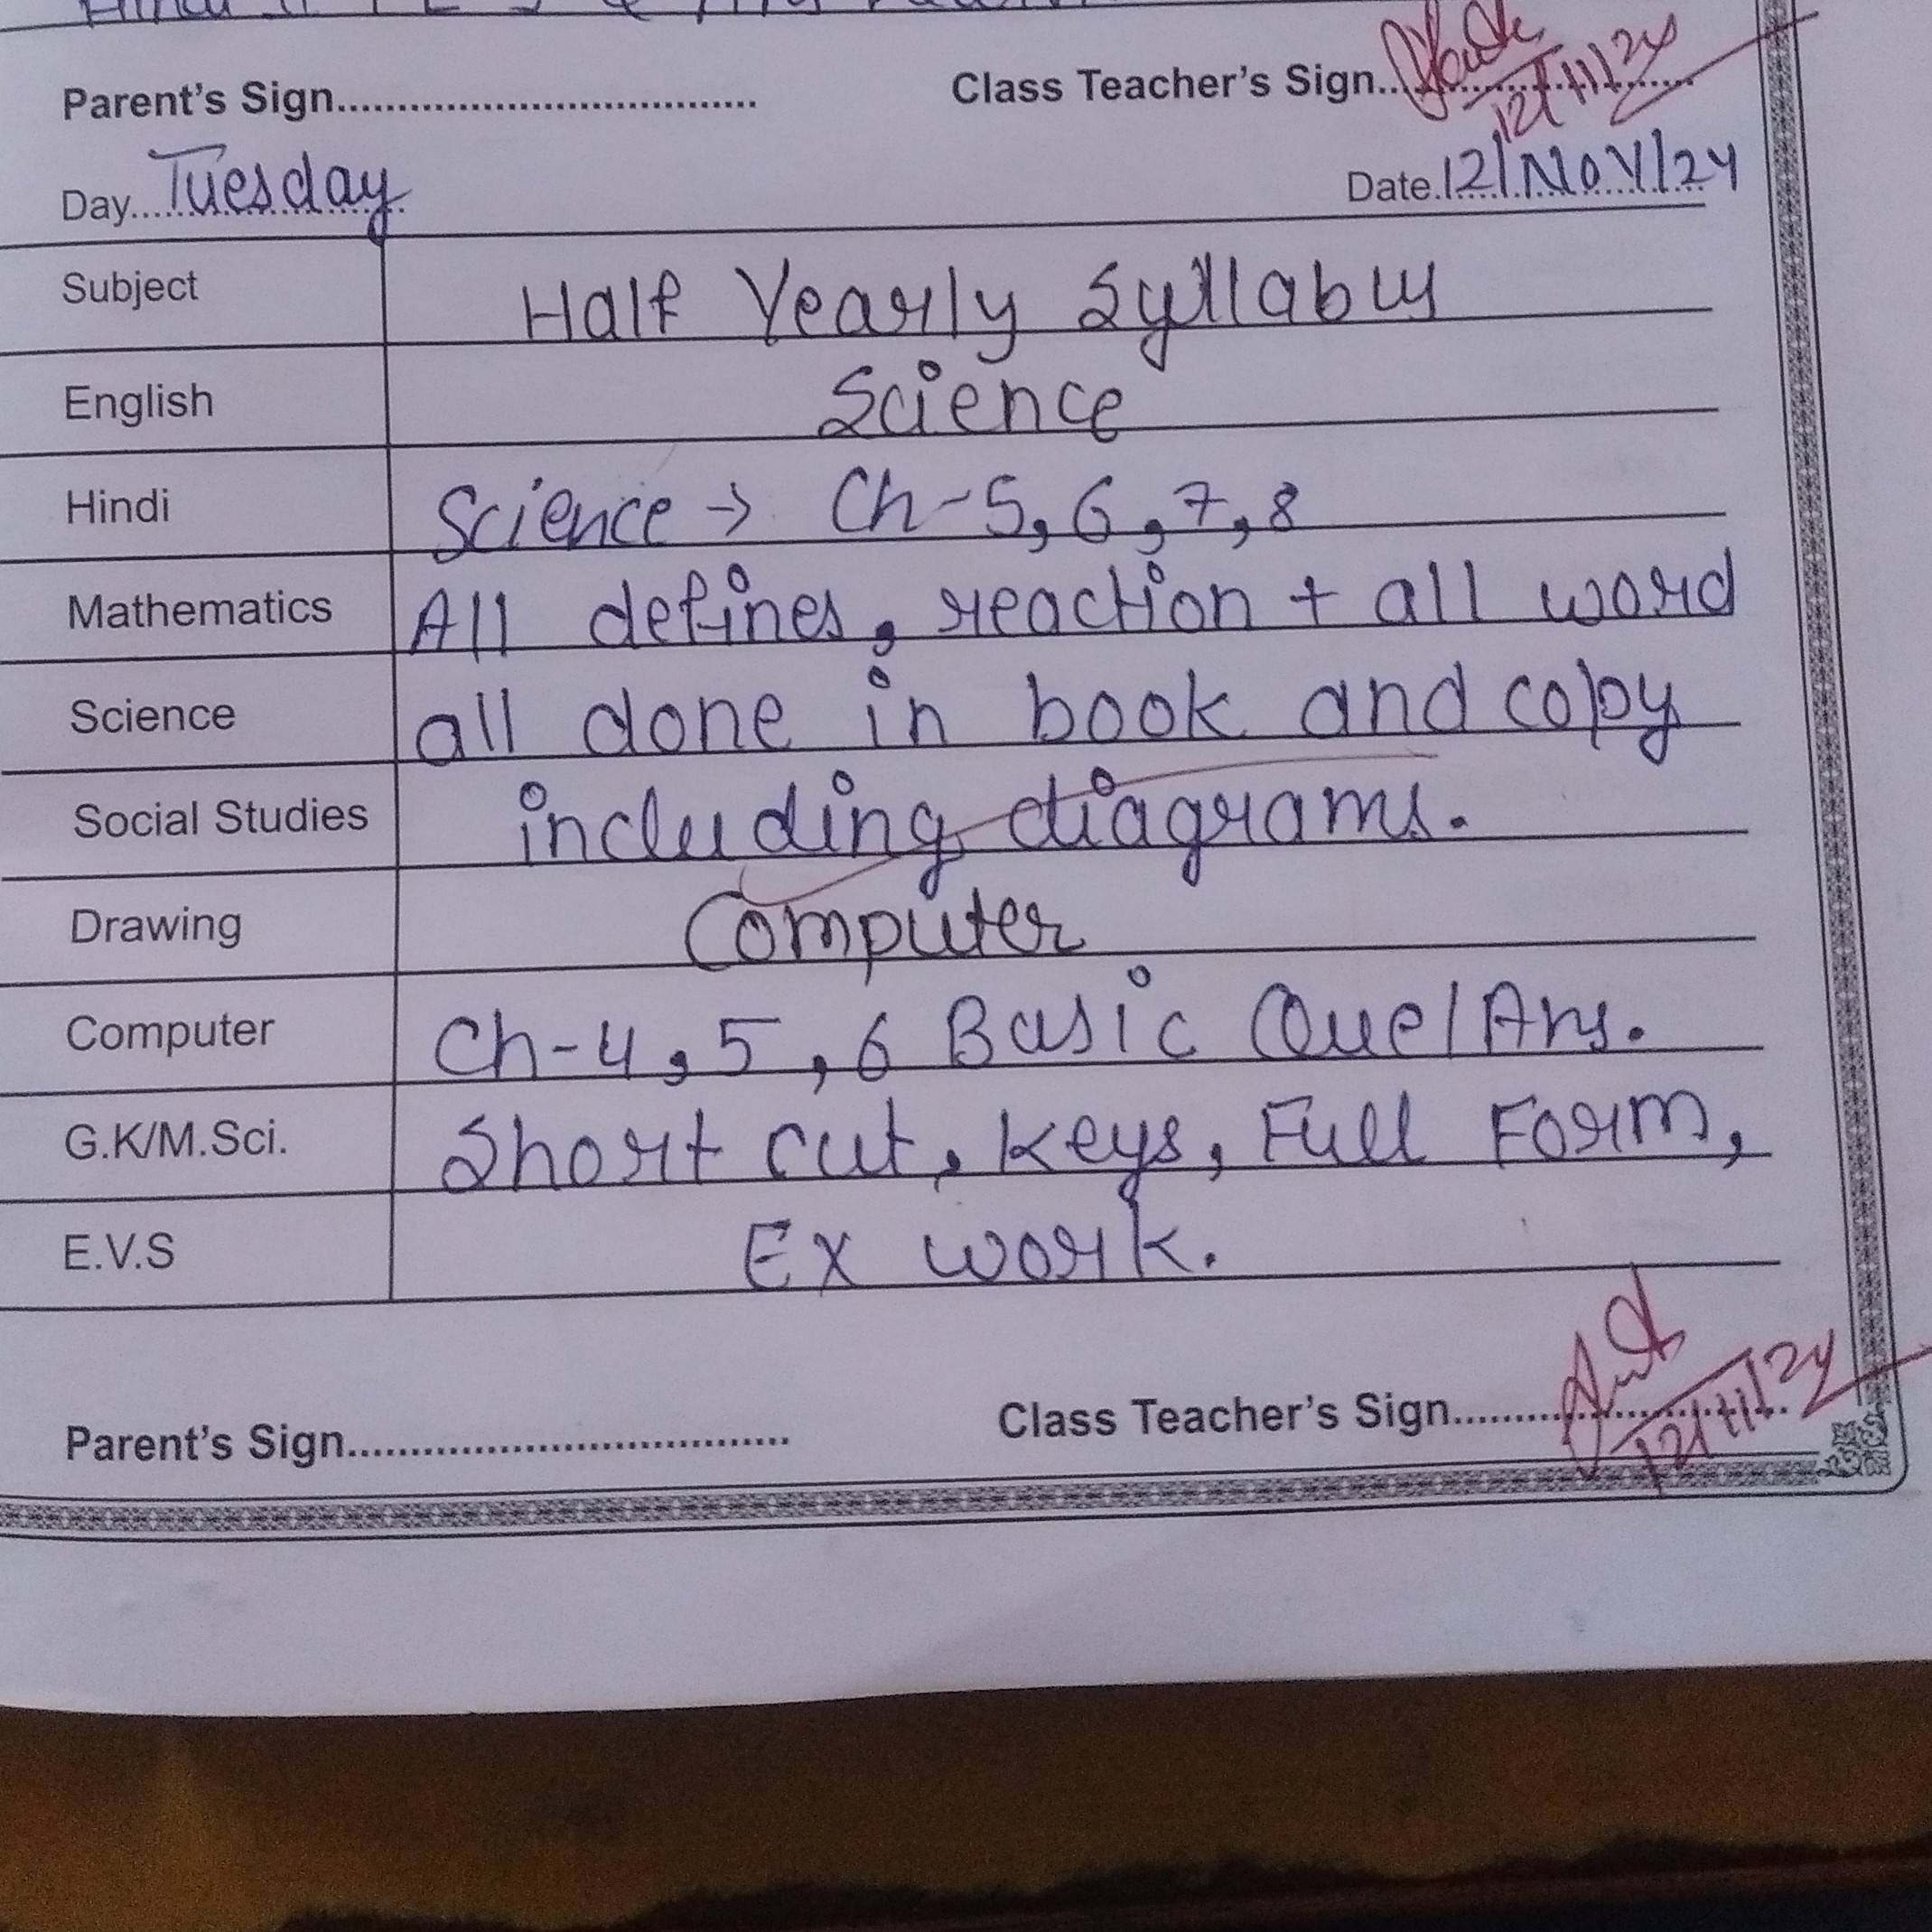 Parent's Sign.................................. Class Teacher's Sign.......................... 12/11/24
Day.......Tuesday Date.12/Nov/24
Subject Half Yearly Syllabus
English Science
Hindi Science → Ch-5, 6, 7, 8
Mathematics All defines, reaction + all word
Science all done in book and copy
Social Studies including diagrams.
Drawing Computer
Computer Ch-4, 5, 6 Basic Que/Ans.
G.K/M.Sci. Short cut, keys, Full Form,
E.V.S Ex work.
Parent's Sign.................................. Class Teacher's Sign.......................... 12/11/24